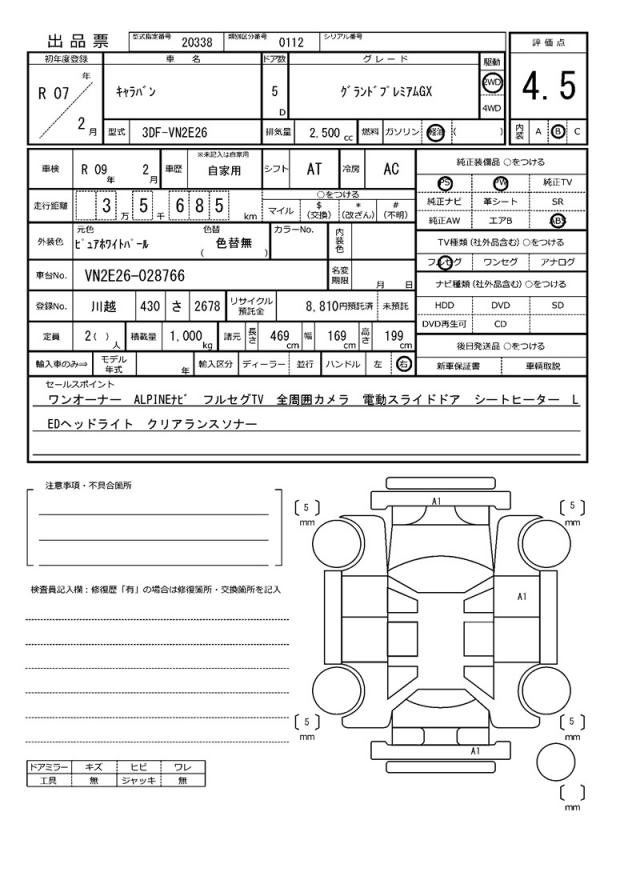 出品票 型式指定番号 20338 類別区分番号 0112 シリアル番号
評価点
4.5
内装 A B C
初年度登録 車名 ドア数 グレード 駆動
R 07 年 2 月 キャラバン 5 D グランドプレミアムGX 2WD 4WD
型式 3DF-VN2E26 排気量 2,500 cc 燃料 ガソリン 軽油 ( )
車検 R 09 年 2 月 車歴 ※未記入は自家用 自家用 シフト AT 冷房 AC
走行距離 3 万 5 千 6 8 5 km ○をつける
マイル $ (交換) * (改ざん) # (不明)
外装色 元色 ピュアホワイトパール 色替 ( 色替無 ) カラーNo. 内装色
車台No. VN2E26-028766 名変期限 月 日
登録No. 川越 430 さ 2678 リサイクル預託金 8,810円預託済 未預託
定員 2( ) 人 積載量 1,000 kg 諸元 長さ 469 cm 幅 169 cm 高さ 199 cm
輸入車のみ⇒ モデル年式 年 輸入区分 ディーラー 並行 ハンドル 左 右
純正装備品 ○をつける
PS PW 純正TV
純正ナビ 革シート SR
純正AW エアB ABS
TV種類 (社外品含む) ○をつける
フルセグ ワンセグ アナログ
ナビ種類 (社外品含む) ○をつける
HDD DVD SD
DVD再生可 CD
後日発送品 ○をつける
新車保証書 車輌取説
セールスポイント
ワンオーナー ALPINEナビ フルセグTV 全周囲カメラ 電動スライドドア シートヒーター L
EDヘッドライト クリアランスソナー
注意事項・不具合箇所
検査員記入欄：修復歴「有」の場合は修復箇所・交換箇所を記入
ドアミラー キズ ヒビ ワレ
工具 無 ジャッキ 無
A1
5 mm
5 mm
A1
5 mm
5 mm
A1
mm